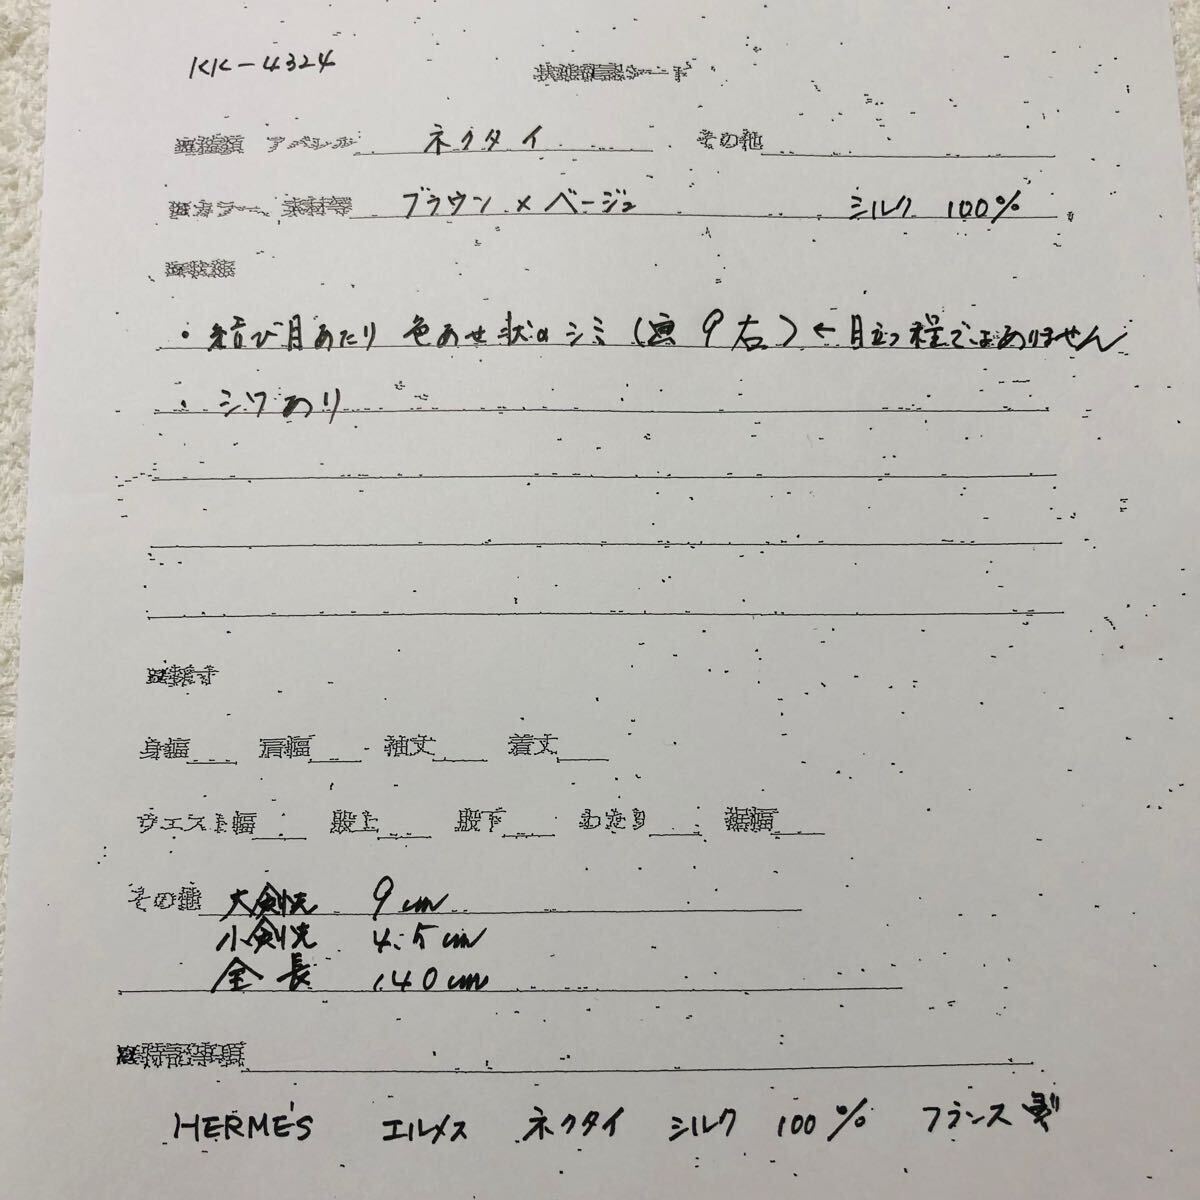 KK-4324
状態確認シート
アパレル ネクタイ その他
カラー、素材等 ブラウン×ベージュ シルク 100%
状態
・結び目あたり 色あせ状のシミ(画9右)←目立つ程ではありません
・シワあり
採寸
身幅 肩幅 袖丈 着丈
ウエスト幅 股上 股下 わたり 裾幅
その他 大剣先 9cm
小剣先 4.5cm
全長 140cm
特記事項
HERMÉS エルメス ネクタイ シルク 100% フランス製